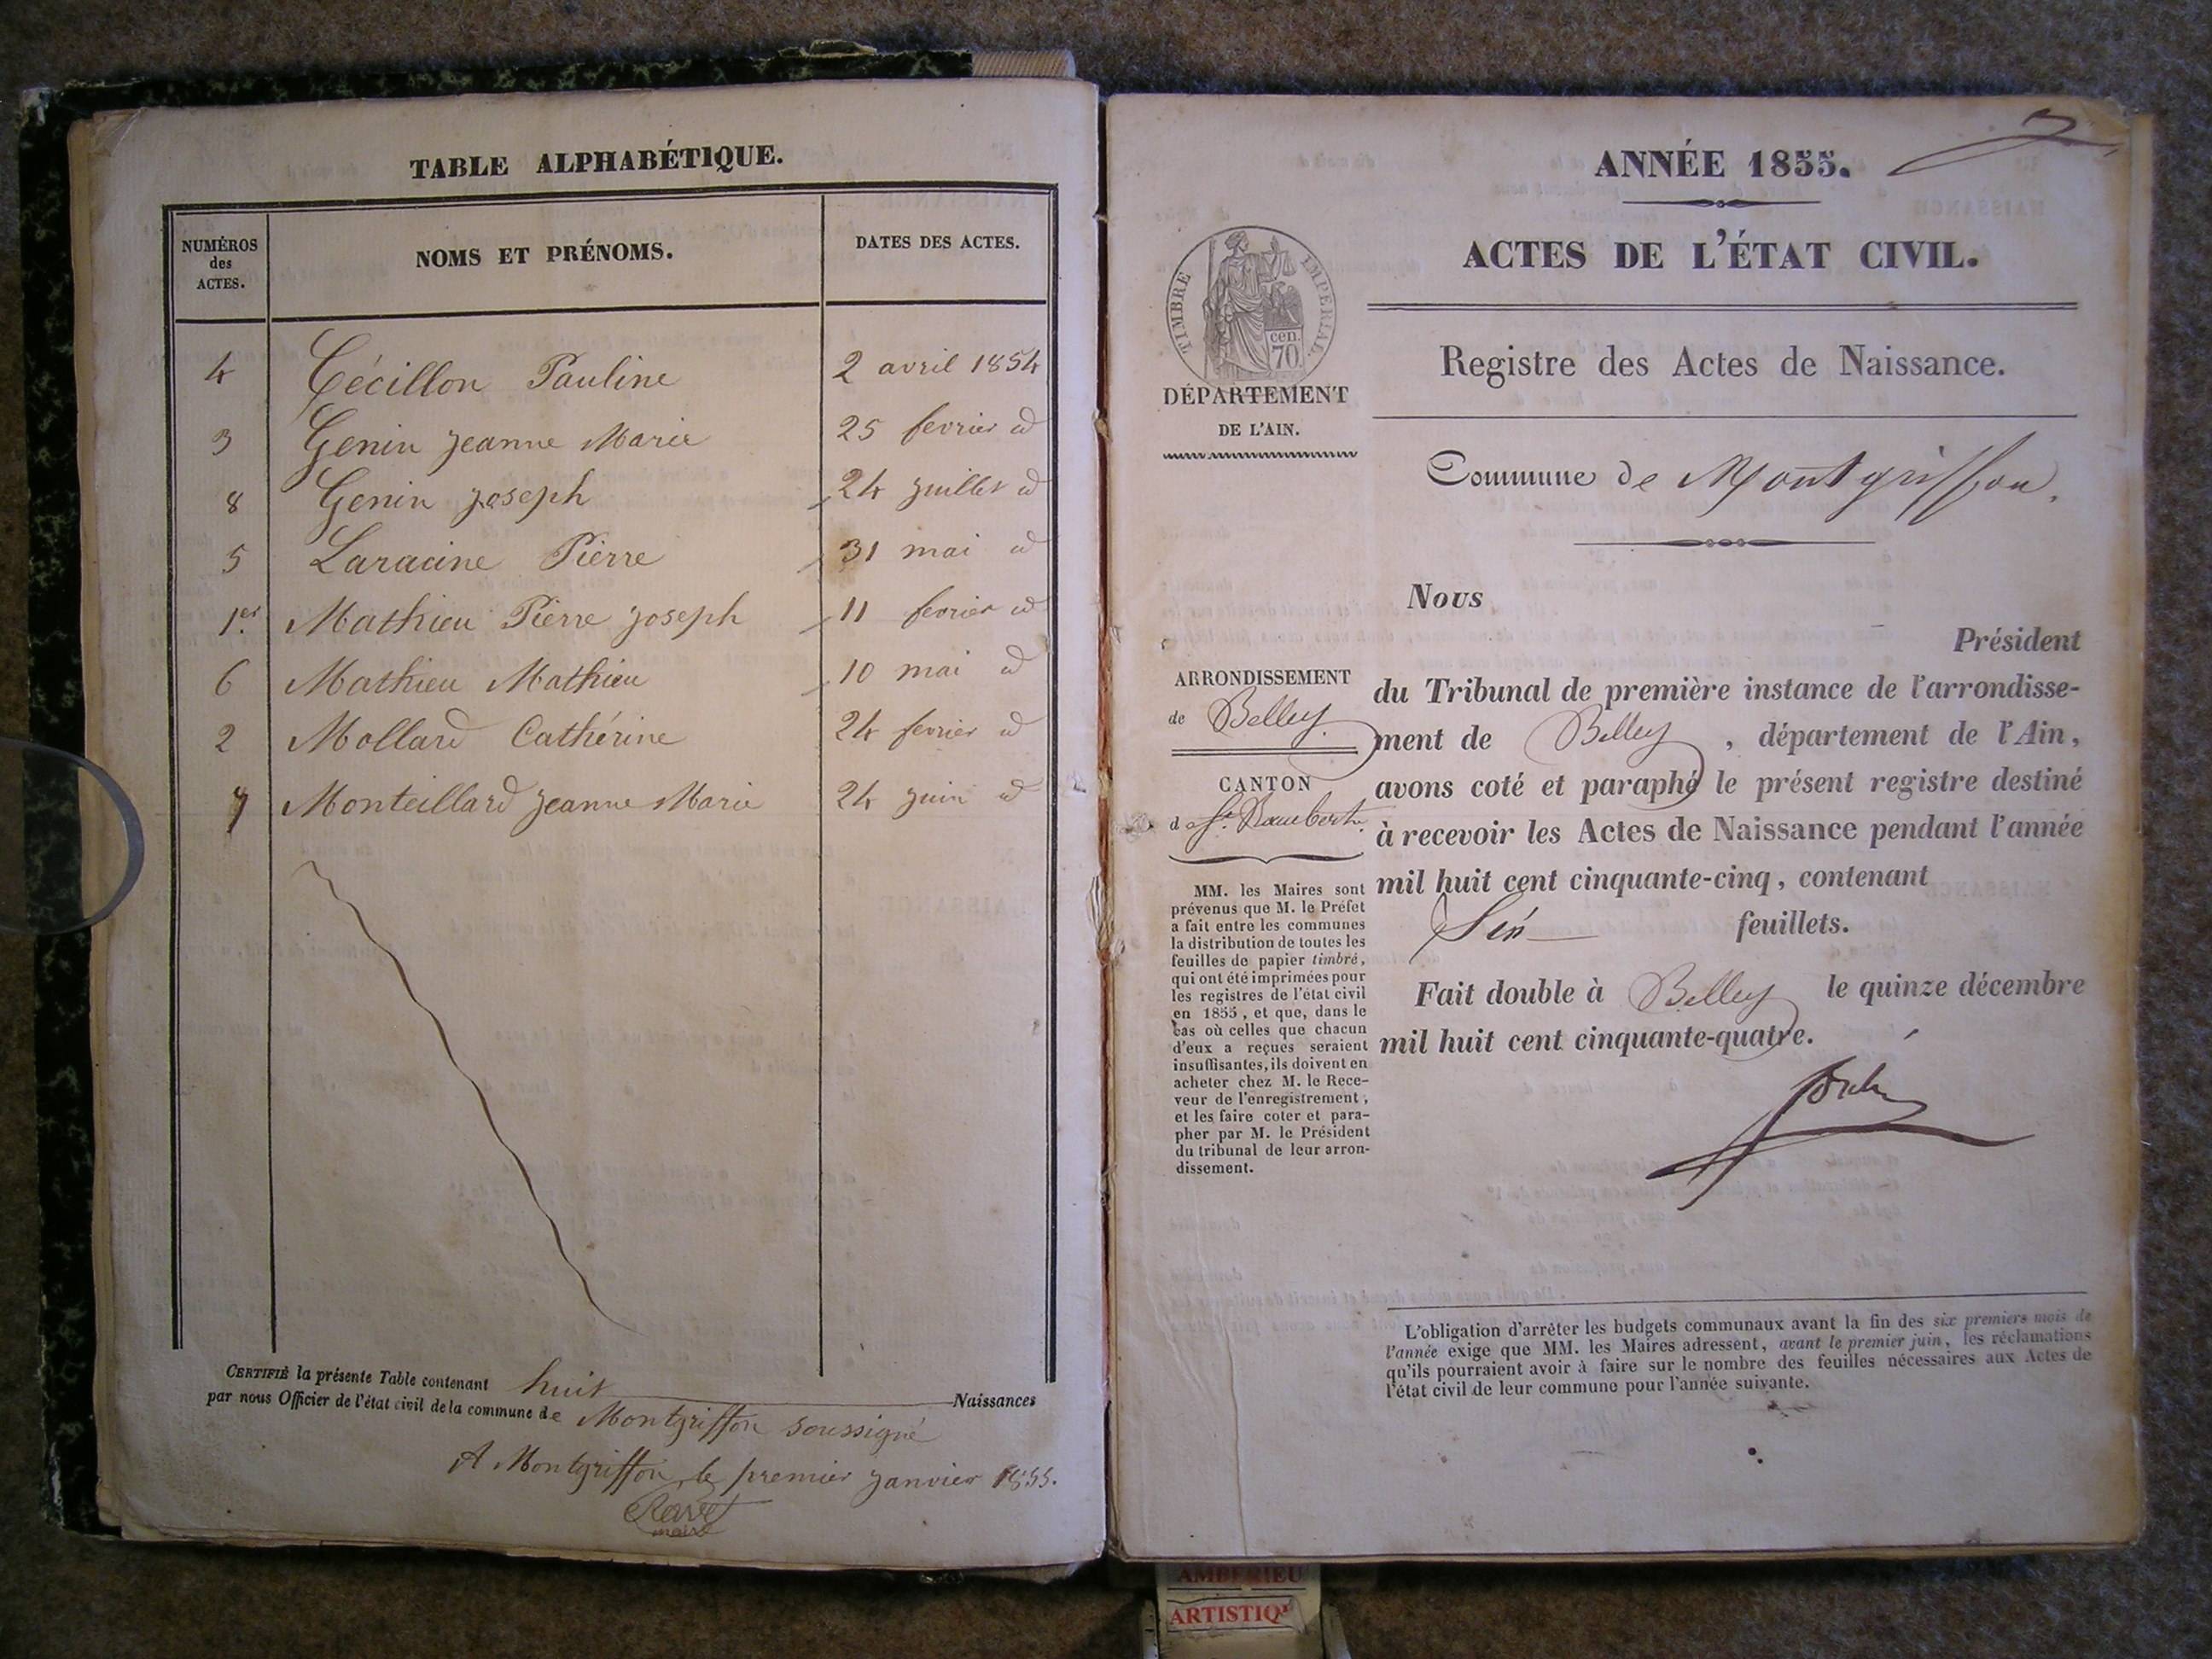 TABLE ALPHABÉTIQUE.
NUMÉROS des ACTES. NOMS ET PRÉNOMS. DATES DES ACTES.
4 Cécillon Pauline 2 avril 1854
3 Genin Jeanne Marie 25 fevrier id
8 Genin Joseph 24 Juillet id
5 Laracine Pierre 31 mai id
1er Mathieu Pierre Joseph 11 fevrier id
6 Mathieu Mathieu 10 mai id
2 Mollard Cathérine 24 fevrier id
7 Monteillard Jeanne Marie 24 Juin id
CERTIFIÉ la présente Table contenant huit Naissances
par nous Officier de l'état civil de la commune de Montgriffon soussigné
A Montgriffon, le premier Janvier 1855.
Ravet
maire
ANNÉE 1855.
ACTES DE L'ÉTAT CIVIL.
TIMBRE IMPÉRIAL.
cen.
70
DÉPARTEMENT
DE L'AIN.
Registre des Actes de Naissance.
Commune de Montgriffon.
ARRONDISSEMENT
de Belley.
CANTON
de St. Rambert.
MM. les Maires sont
prévenus que M. le Préfet
a fait entre les communes
la distribution de toutes les
feuilles de papier timbré,
qui ont été imprimées pour
les registres de l'état civil
en 1855, et que, dans le
cas où celles que chacun
d'eux a reçues seraient
insuffisantes, ils doivent en
acheter chez M. le Rece-
veur de l'enregistrement,
et les faire coter et para-
pher par M. le Président
du tribunal de leur arron-
dissement.
Nous
Président
du Tribunal de première instance de l'arrondisse-
ment de Belley, département de l'Ain,
avons coté et paraphé le présent registre destiné
à recevoir les Actes de Naissance pendant l'année
mil huit cent cinquante-cinq, contenant
feuillets.
Fait double à Belley le quinze décembre
mil huit cent cinquante-quatre.
L'obligation d'arrêter les budgets communaux avant la fin des six premiers mois de
l'année exige que MM. les Maires adressent, avant le premier juin, les réclamations
qu'ils pourraient avoir à faire sur le nombre des feuilles nécessaires aux Actes de
l'état civil de leur commune pour l'année suivante.
AMBERIEU
ARTISTIQU